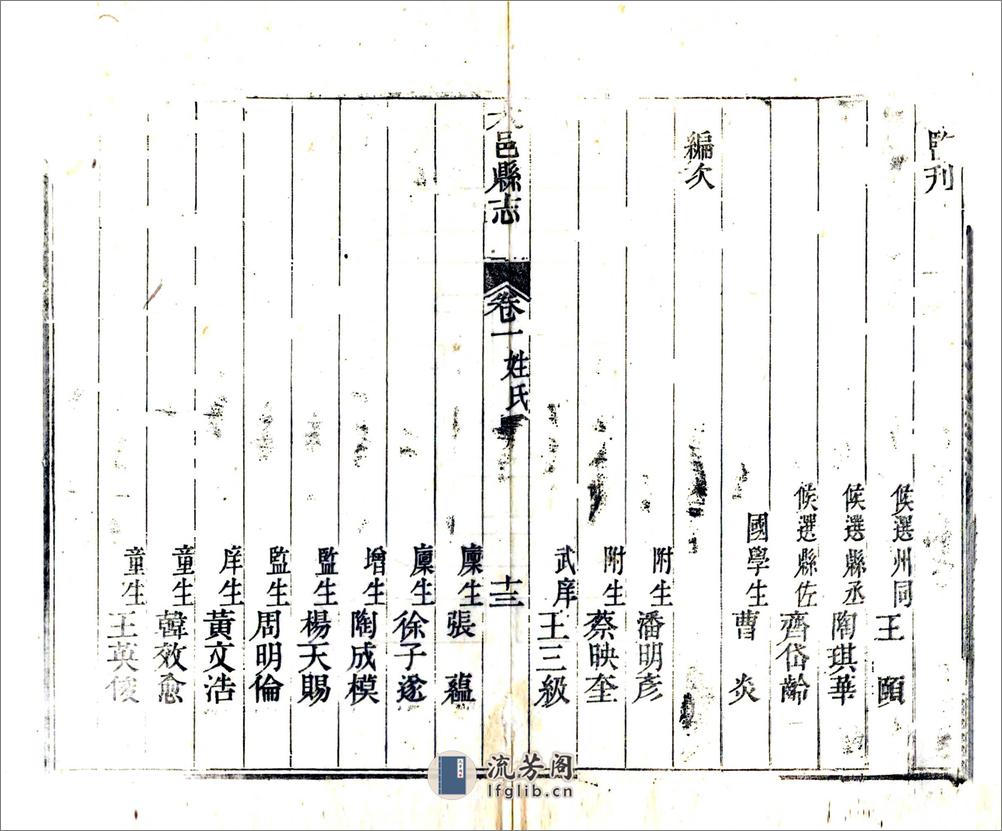 監刊
候選州同 王頤
候選縣丞 陶琪華
候選縣佐 齊岱齡
國學生 曹炎
編次
附生 潘明彥
附生 蔡映奎
武庠 王三級
邑縣志 卷一 姓氏 十三
廩生 張蘊
廩生 徐子遂
增生 陶成模
監生 楊天賜
監生 周明倫
庠生 黃文浩
童生 韓效愈
童生 王英俊
流芳阁
lfglib.cn